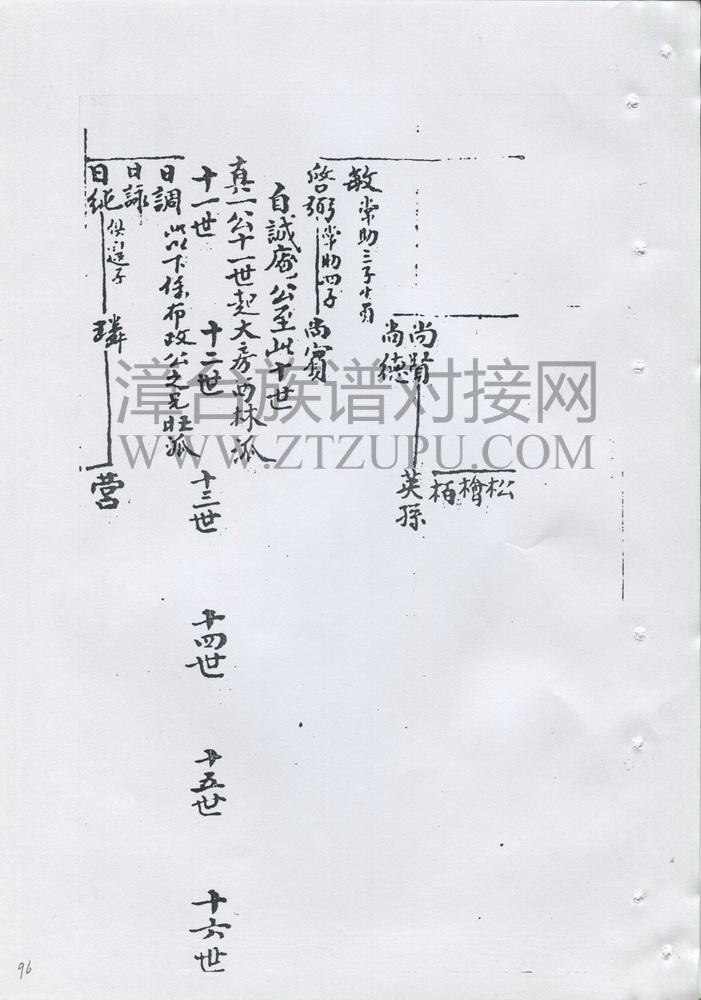 松
檜
栢
尚賢 英孫
尚德
敏 常助三子
啓弼 常助四子 尚賓
自誠庵公至此十世
真一公十一世起大房西林派
十一世 十二世 十三世 十四世 十五世 十六世
日調 此以下係布政公之兄旺派
日詠
日純 璘 營
漳台族谱对接网
WWW.ZTZUPU.COM
96